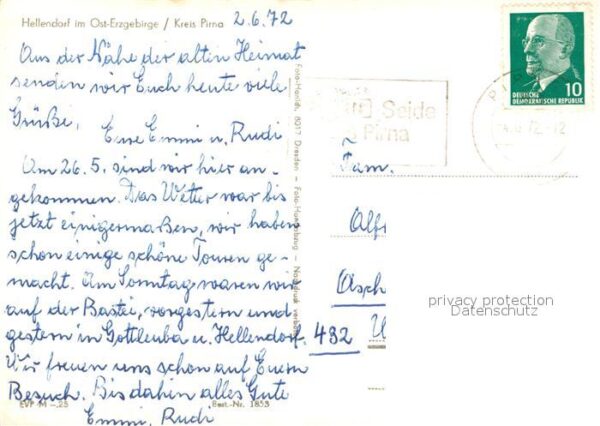 Hellendorf im Ost-Erzgebirge / Kreis Pirna 2.6.72
Aus der Nähe der alten Heimat
senden wir Euch heute viele
Grüße, Eure Emmi u. Rudi
Am 26.5. sind wir hier an-
gekommen. Das Wetter war bis
jetzt einigermaßen, wir haben
schon einige schöne Touren ge-
macht. Am Sonntag waren wir
auf der Bastei, vorgestern und
gestern in Gottleuba u. Hellendorf.
Wir freuen uns schon auf Euern
Besuch. Bis dahin alles Gute
Emmi, Rudi
EVP M -.25 Best.-Nr. 1853
8017 Dresden
Seide
Pirna
DEUTSCHE
DEMOKRATISCHE REPUBLIK 10
Fam.
Alfr
Asch
432 U
privacy protection
Datenschutz